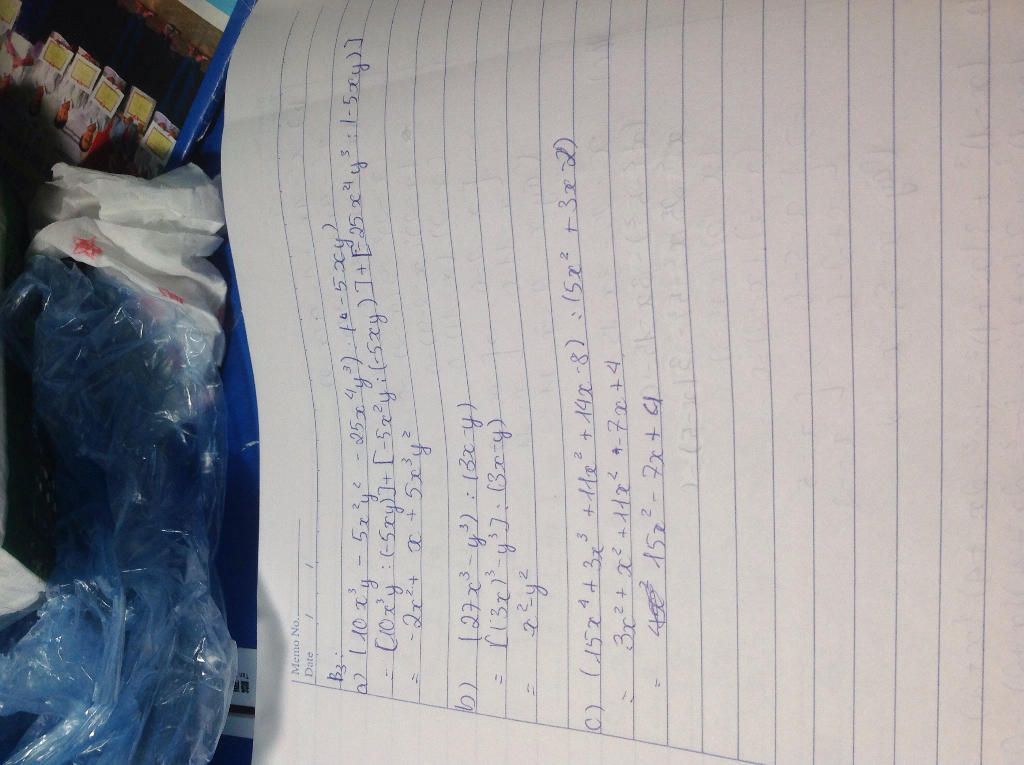 Memo No.
Date / /
B3:
a) (10x³y - 5x²y - 25x⁴y³) : (-5xy)
= [10x³y : (-5xy)] + [-5x²y : (-5xy)] + [-25x⁴y³ : (-5xy)]
= -2x² + x + 5x³y²
b) (27x³ - y³) : (3x - y)
= [(3x)³ - y³] : (3x - y)
= x² - y²
c) (15x⁴ + 3x³ + 11x² + 14x - 8) : (5x² + 3x - 2)
= 3x² + x² + 11x² - 7x + 4
= 15x² - 7x + 4